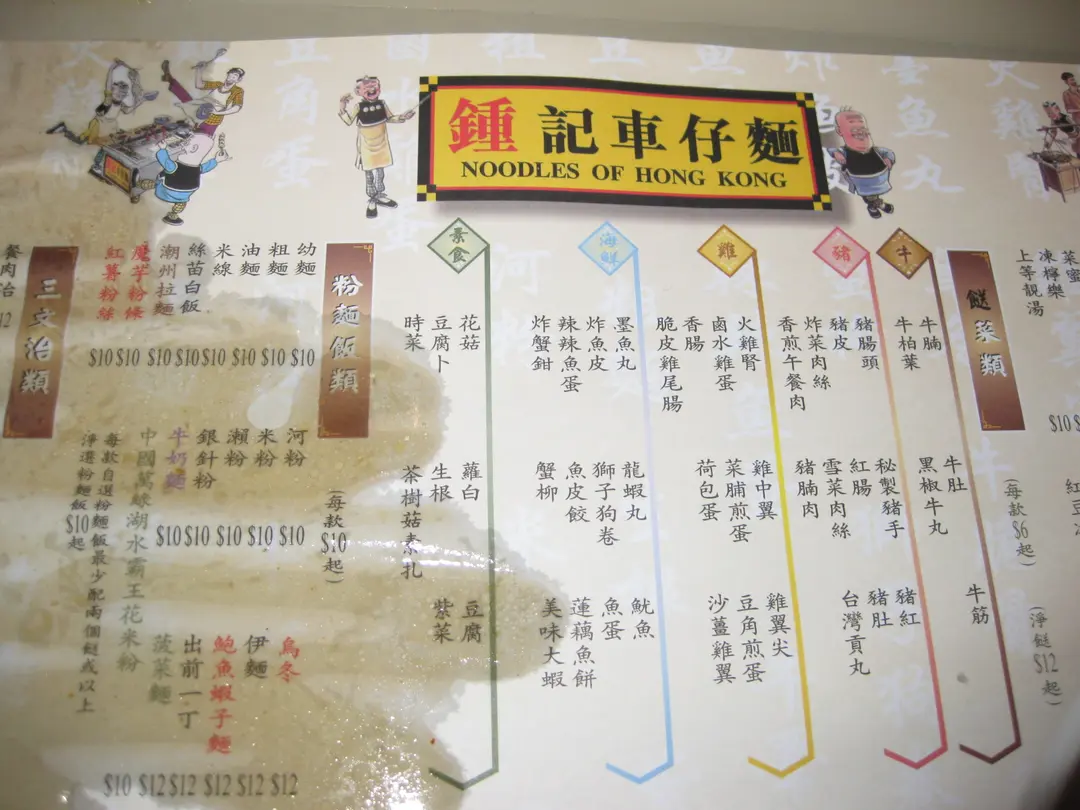 鍾記車仔麵
NOODLES OF HONG KONG
凍檸樂
上等靚湯
$10
餸菜類
(每款$6起)
(淨餸$12起)
牛
牛腩
牛柏葉
牛肚
黑椒牛丸
牛筋
豬
豬腸頭
豬皮
炸菜肉絲
香煎午餐肉
秘製豬手
紅腸
雪菜肉絲
豬腩肉
豬紅
豬肚
台灣貢丸
雞
火雞腎
鹵水雞蛋
香腸
脆皮雞尾腸
雞中翼
菜脯煎蛋
荷包蛋
雞翼尖
豆角煎蛋
沙薑雞翼
海鮮
墨魚丸
炸魚皮
辣辣魚蛋
炸蟹鉗
龍蝦丸
獅子狗卷
魚皮餃
蟹柳
魷魚
魚蛋
蓮藕魚餅
美味大蝦
素食
花菇
豆腐卜
時菜
蘿白
生根
茶樹菇素扎
豆腐
紫菜
粉麵飯類
(每款$10起)
幼麵 $10
粗麵 $10
油麵 $10
米線 $10
絲苗白飯 $10
潮州拉麵 $10
魔芋粉條 $10
紅薯粉絲 $10
河粉 $10
米粉 $10
瀨粉 $10
銀針粉 $10
牛奶麵 $10
中國萬綠湖水霸王花米粉 $10
烏冬 $12
伊麵 $12
鮑魚蝦子麵 $12
出前一丁 $12
菠菜麵 $12
每款自選粉麵飯最少配兩個餸或以上
淨選粉麵飯$10起
三文治類
餐肉治